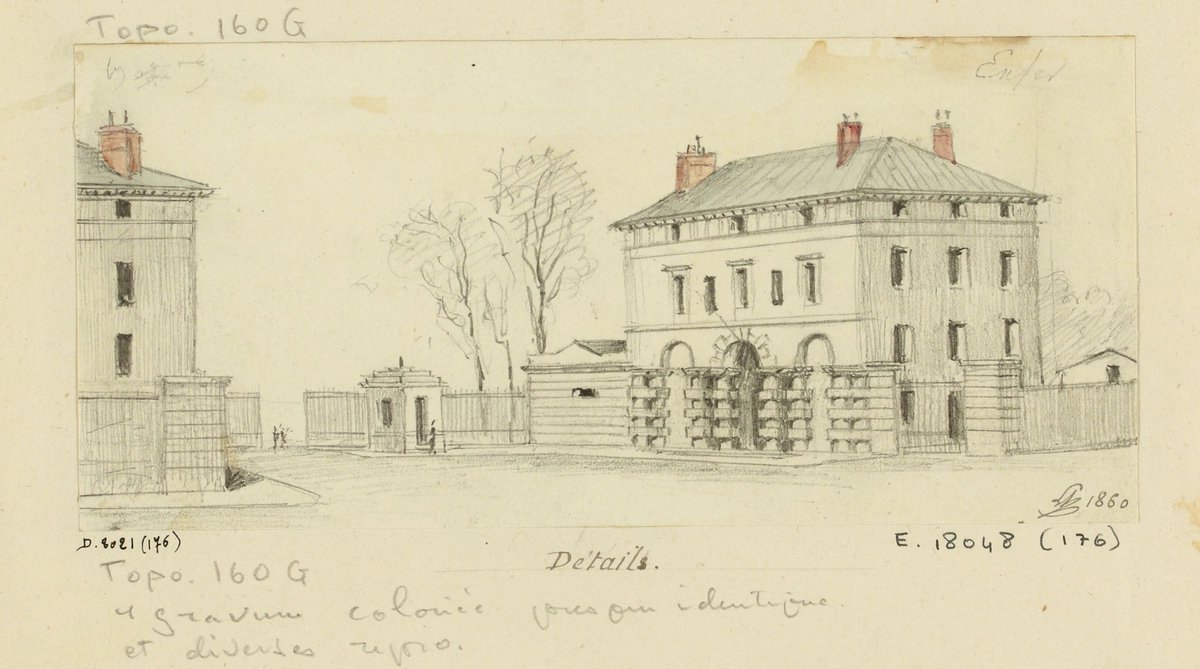 Topo. 160 G
Enfer
1860
D. 8021 (176)
E. 18048 (176)
Détails.
Topo. 160 G
gravure coloriée presque identique
et diverses repro.